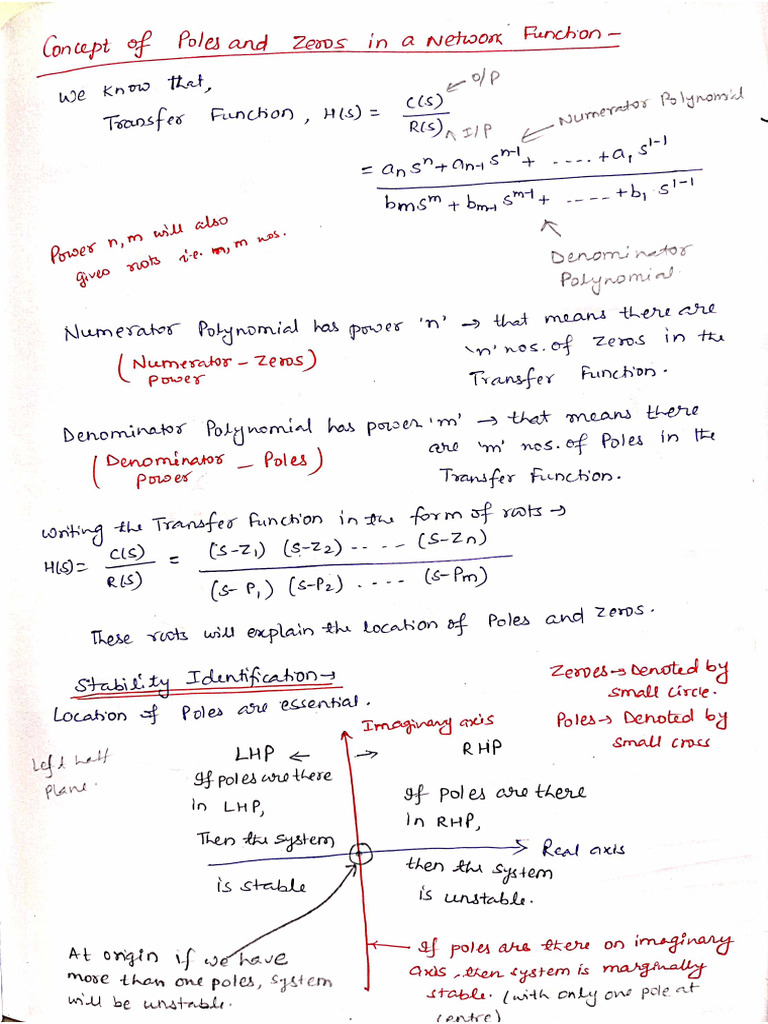 Concept of Poles and Zeros in a Network Function -
We know that,
Transfer Function, H(s) = C(s) / R(s)
O/P
I/P
Numerator Polynomial
= aₙsⁿ + aₙ₋₁sⁿ⁻¹ + ..... + a₁s¹⁻¹
bₘsᵐ + bₘ₋₁sᵐ⁻¹ + ..... + b₁.s¹⁻¹
Denominator
Polynomial
Power n, m will also
gives roots i.e. m, m nos.
Numerator Polynomial has power 'n' → that means there are
(Numerator - Zeros)
power
'n' nos. of zeros in the
Transfer Function.
Denominator Polynomial has power 'm' → that means there
(Denominator - Poles)
power
are 'm' nos. of Poles in the
Transfer Function.
Writing the Transfer Function in the form of roots →
H(s) = C(s) / R(s) = (S-Z₁) (S-Z₂) ..... (S-Zn)
(S-P₁) (S-P₂) .... (S-Pm)
These roots will explain the location of Poles and zeros.
Stability Identification →
Location of Poles are essential.
Zeroes → Denoted by
small circle.
Poles → Denoted by
small cross
Imaginary axis
Left half
plane.
LHP ←
→ RHP
If poles are there
in LHP,
Then the system
is stable
If poles are there
in RHP,
then the system
is unstable.
Real axis
At origin if we have
more than one poles, system
will be unstable.
If poles are there on imaginary
axis, then system is marginally
stable. (with only one pole at
centre)